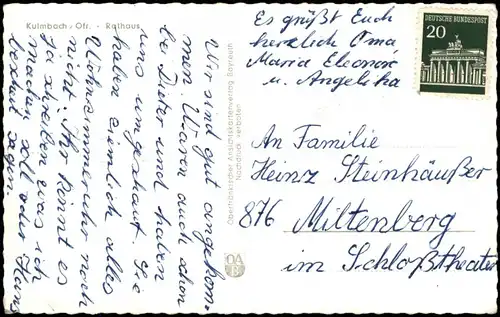 Kulmbach, Ofr. - Rathaus
Wir sind gut angekom-
men. Waren auch schon
bei Dieter und haben
uns umgeschaut. Sie
haben ziemlich alles
Wohnzimmer noch
nicht. Ihr könnt es
ja schreiben was ich
machen soll oder Hans
Bescheid sagen.
Es grüßt Euch
herzlich Oma
Maria Eleonore
u. Angelika
DEUTSCHE BUNDESPOST
20
Oberfränkischer Ansichtskartenverlag Bayreuth
Nachdruck verboten
OA
B
An Familie
Heinz Steinhäußer
876 Miltenberg
im Schloßtheater